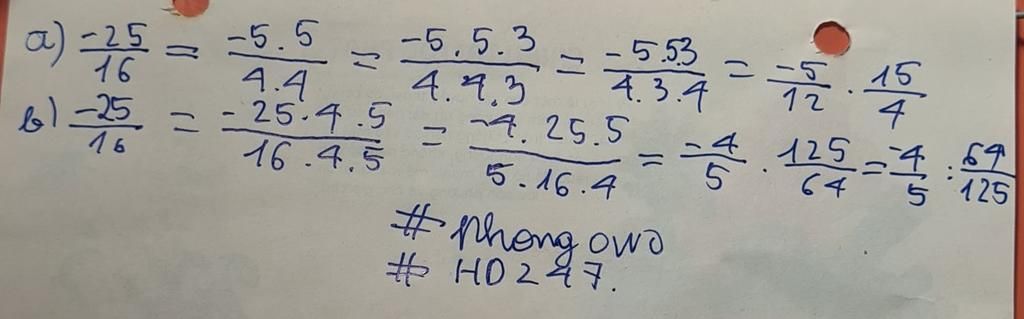 a) -25/16 = -5.5/4.4 = -5.5.3/4.4.3 = -5.5.3/4.3.4 = -5/12 . 15/4
b) -25/16 = -25.4.5/16.4.5 = -4.25.5/5.16.4 = -4/5 . 125/64 = -4/5 : 64/125
# phong owo
# HD247.